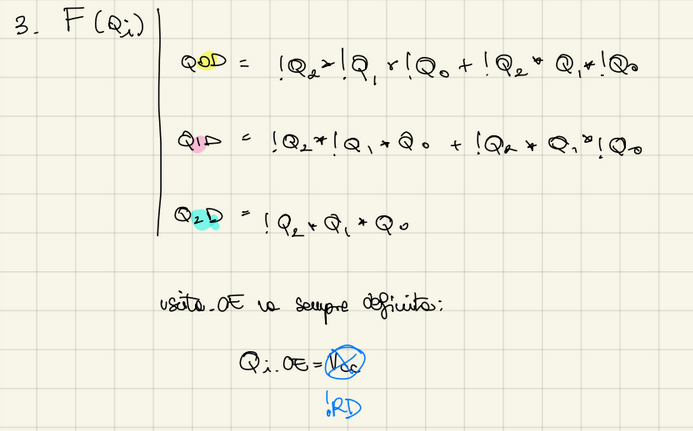 3. F(Qi)
Q0D = !Q2*!Q1*!Q0 + !Q2*Q1*!Q0
Q1D = !Q2*!Q1*Q0 + !Q2*Q1*!Q0
Q2D = !Q2*Q1*Q0
uscita.OE va sempre definita:
Qi.OE=Vcc
!RD